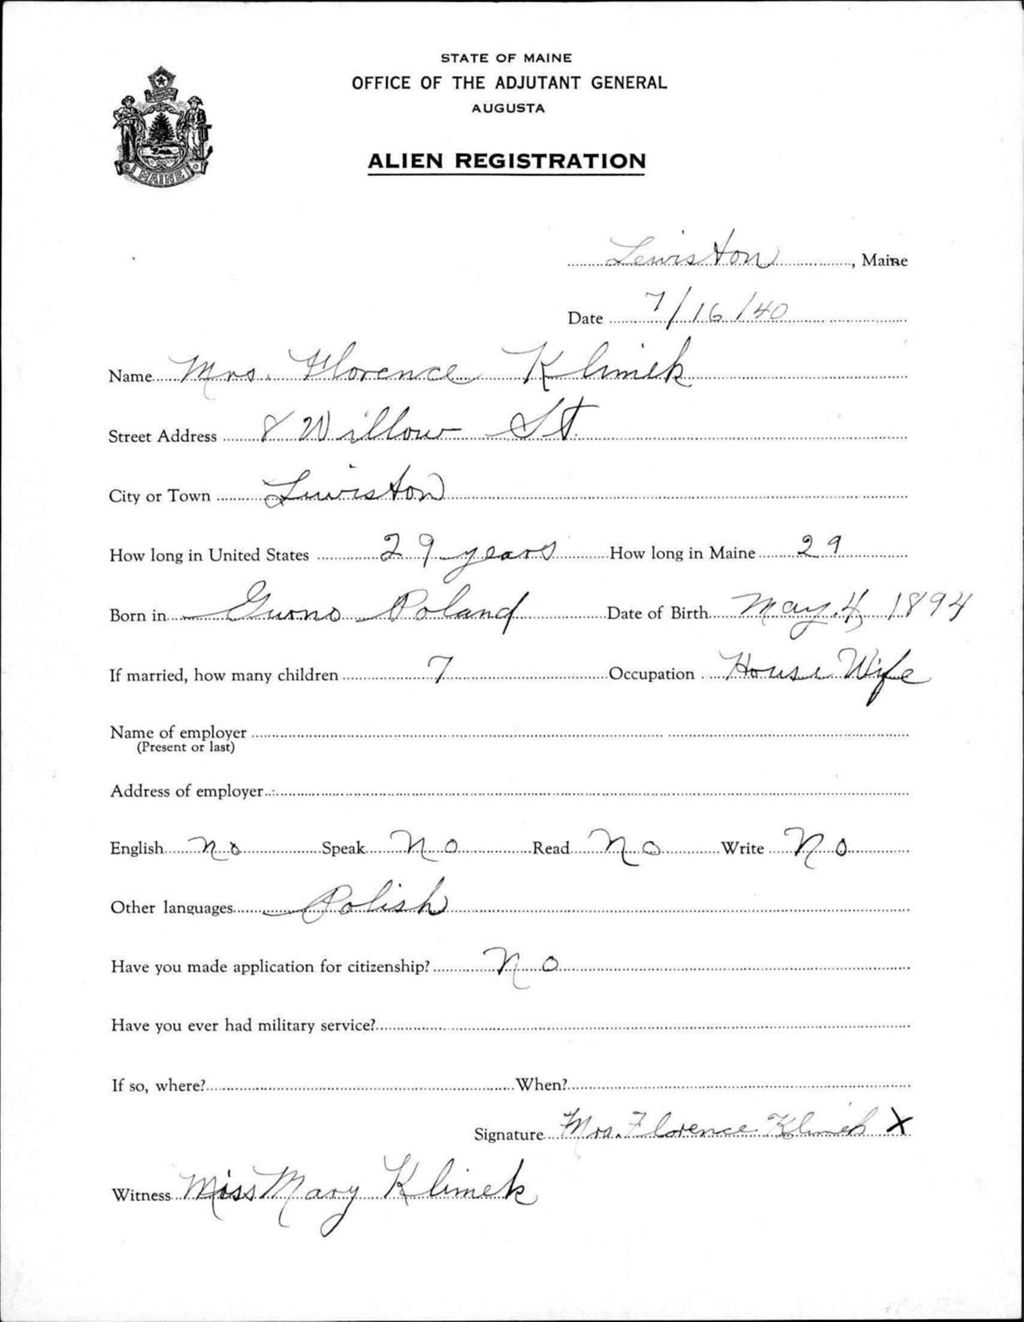 STATE OF MAINE
OFFICE OF THE ADJUTANT GENERAL
AUGUSTA
ALIEN REGISTRATION
MAINE
Lewiston, Maine
Date 7/16/40
Name Mrs. Florence Klimek
Street Address 8 Willow St.
City or Town Lewiston
How long in United States 29 years How long in Maine 29
Born in Poland Date of Birth May 4, 1894
If married, how many children 7 Occupation House Wife
Name of employer
(Present or last)
Address of employer
English No Speak No Read No Write No
Other languages Polish
Have you made application for citizenship? No
Have you ever had military service?
If so, where? When?
Signature Mrs. Florence Klimek X
Witness Miss Mary Klimek